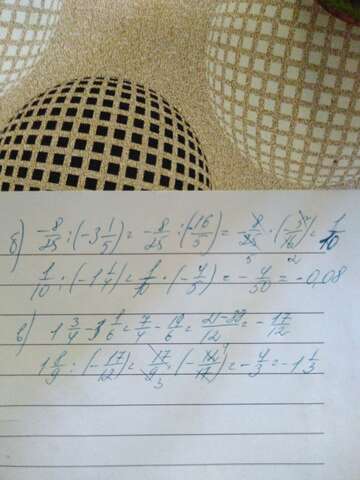 б) -8/25 : (-3 1/5) = -8/25 : (-16/5) = -8/25 · (-5/16) = 1/10
1/10 : (-1 1/4) = 1/10 · (-4/5) = -4/50 = -0,08
в) 1 3/4 - 3 1/6 = 7/4 - 19/6 = 21-38/12 = -17/12
1 8/9 : (-17/12) = 17/9 · (-12/17) = -4/3 = -1 1/3